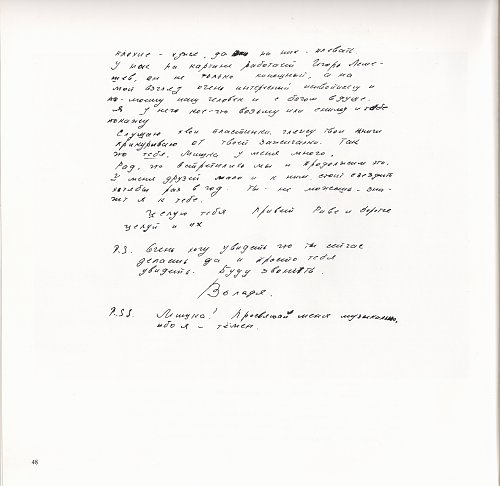 плохие - хуже, да на них - плевать.
У нас на картине работает Игорь
он не только киношный, а на
мой взгляд очень интересный и
по-моему наш человек и с богом в душе.
Я у него кое-что возьму или сниму и тебе
покажу
Слушаю твои пластинки, гляжу твои книги
прикуриваю от твоей зажигалки. Так
что тебя, Мишка, у меня много.
Рад, что встретились мы и продолжим это.
У меня друзей мало и к ним стоит ездить
хотя бы раз в год. Ты - не можешь, зна-
чит я к тебе.
Целую тебя Привет Риве и Дороте
целуй и их
P.S. Очень хочу увидеть что ты сейчас
делаешь да и просто тебя
увидеть. Буду звонить.
Володя.
P.SS. Мишка! Просвещай меня музыкально,
ибо я - тёмен.
48